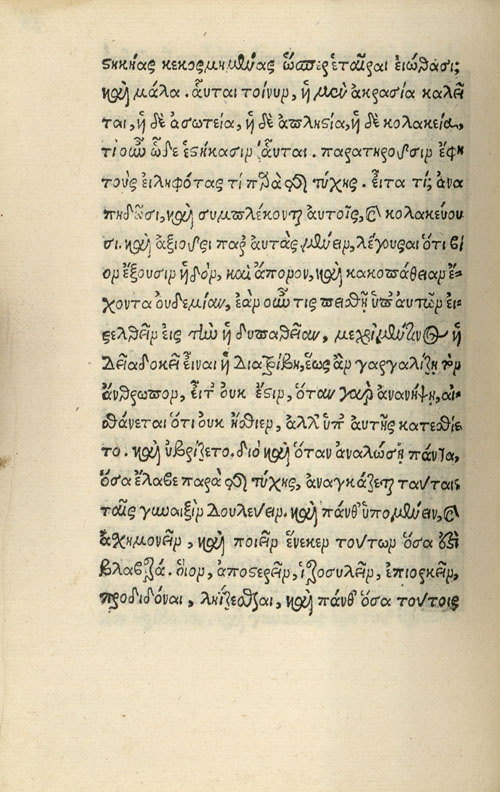 ϛηκῄας κεκοσμημϑύας ὥσπερ ἑταῖραι εἰώθασι;
καὶ μάλα. ἇυται τοίνυν, ἡ μὲν ἀκρασία καλεῖ
ται, ἡ δὲ ἀσωτεία, ἡ δὲ ἀπληστία, ἡ δὲ κολακεία,
τί οὖν ὧδε ἑστήκασιν ἇυται. παρατηροῦσιν ἔφη
τοὺς εἰληφότας τί παρὰ τῆς τύχης. εἶτα τί; ἀνα
πηδῶσι, καὶ συμπλέκονται αὐτοῖς, καὶ κολακεύου
σι. καὶ ἀξιοῦσι παρ' αὐτὰς μένειν, λέγουσαι ὅτι βί
ον ἕξουσιν ἡδὺν, καὶ ἄπονον, καὶ κακοπάθειαν ἔ-
χοντα οὐδεμίαν, ἐὰν οὖν τις πεισθῇ ὑπ' αὐτῶν εἰ-
σελθεῖν εἰς τὴν ἡδυπαθείαν, μεχρὶ μέν τινος ἡ
δεῖα δοκεῖ εἶναι ἡ διατριβὴ, ἕως ἂν γαργαλίζῃ τὸν
ἄνθρωπον, εἶτ' οὐκ ἔστιν, ὅταν γὰρ ἀνανήψῃ, αἰ-
σθάνεται ὅτι οὐκ ἤσθιεν, ἀλλ' ὑπ' αὐτῆς κατεσθίε
το. καὶ ὑβρίζετο. διὸ καὶ ὅταν ἀναλώσῃ πάντα,
ὅσα ἔλαβε παρὰ τῆς τύχης, ἀναγκάζεται ταύταις
ταῖς γυναιξὶν δουλεύειν. καὶ πάνθ' ὑπομένειν, καὶ
ἀσχημονεῖν, καὶ ποιεῖν ἕνεκεν τούτων ὅσα ἐστὶ
βλαβερά. οἷον, ἀποστερεῖν, ἱεροσυλεῖν, ἐπιορκεῖν,
προδιδόναι, ληίζεσθαι, καὶ πάνθ' ὅσα τούτοις